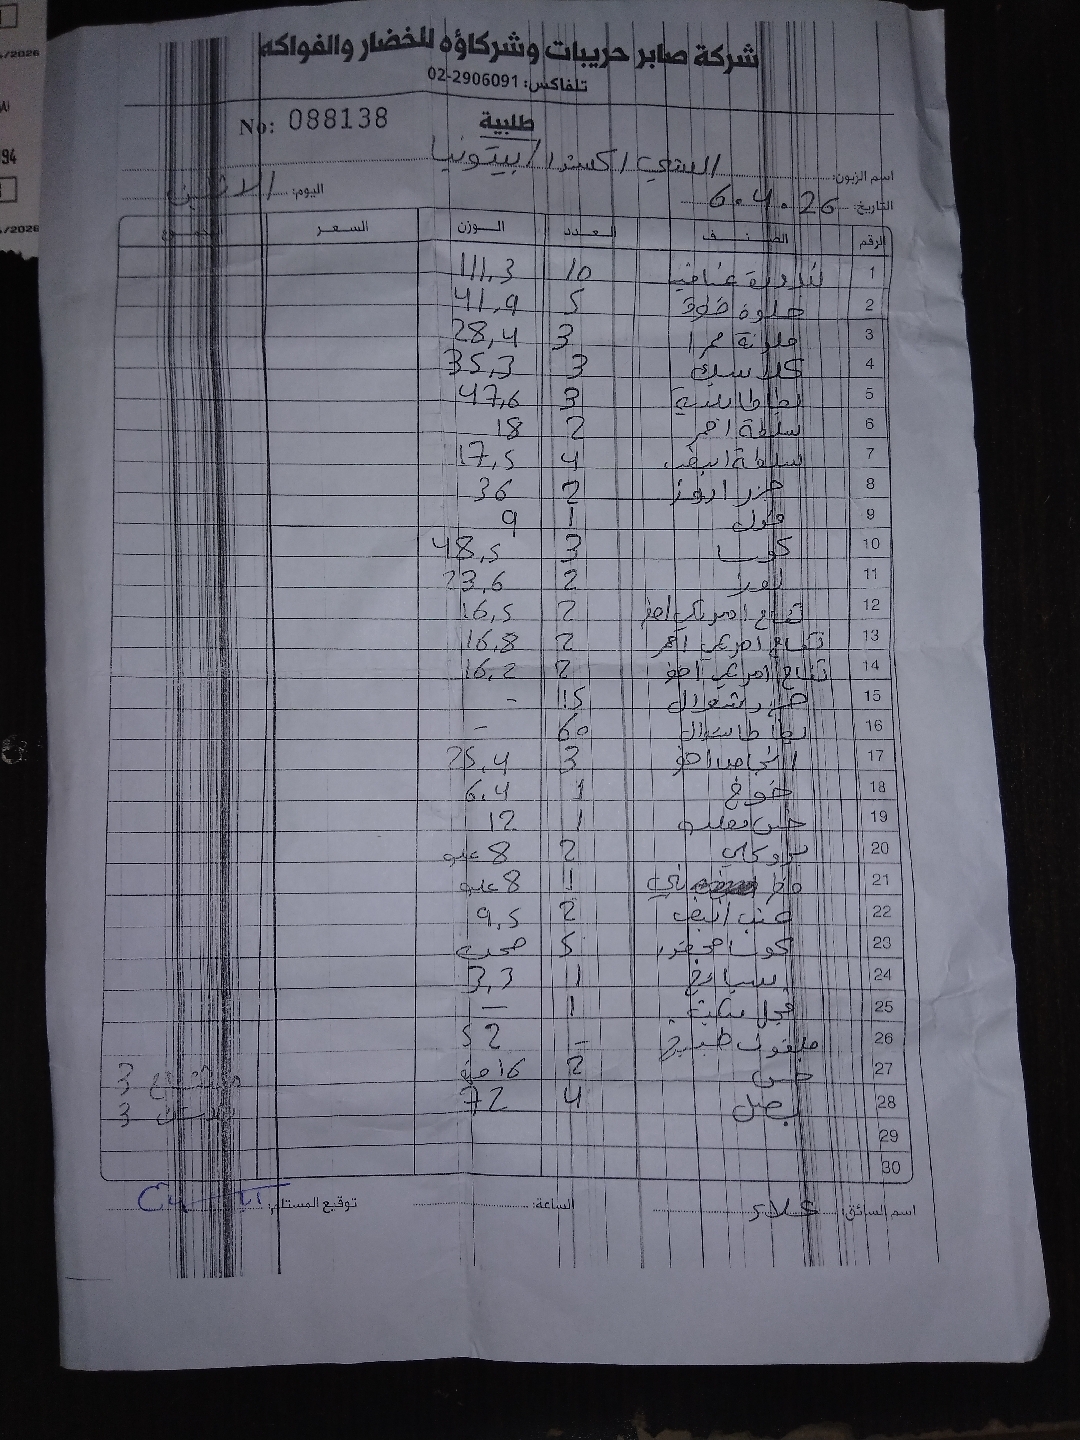 شركة صابر حريبات وشركاؤه للخضار والفواكه
تلفاكس: 02-2906091
No: 088138
طلبية
اسم الزبون: السني اكسترا / بيتونيا
التاريخ: 6.4.26 اليوم: الاثنين
الرقم الصنف العدد الوزن السعر المجموع
1 بندورة عناقيد 10 111,3
2 حلوة 5 41,9
3 ملونة حمرا 3 28,4
4 كلاسيك 3 35,3
5 بطاطا بلدية 3 47,6
6 سلطة احمر 2 18
7 سلطة ابيض 4 17,5
8 جزر 2 36
9 فول 1 9
10 كوسا 3 48,5
11 2 23,6
12 تفاح امريكي اصفر 2 16,5
13 تفاح امريكي احمر 2 16,8
14 تفاح امريكي اخضر 2 16,2
15 15 -
16 بطاطا 60 -
17 انجاص اخضر 3 25,4
18 خوخ 1 6,4
19 خس 1 12
20 بروكلي 2 8 علبه
21 فطر بني 1 8 علبه
22 عنب ابيض 2 9,5
23 كوسا محفور 5 صحن
24 سبانخ 1 3,3
25 فجل 1 -
26 ملفوف طبيخ - 52
27 خس 2 16
28 بصل 4 72
29
30
3
3
اسم السائق: علاء الساعة: توقيع المستلم: